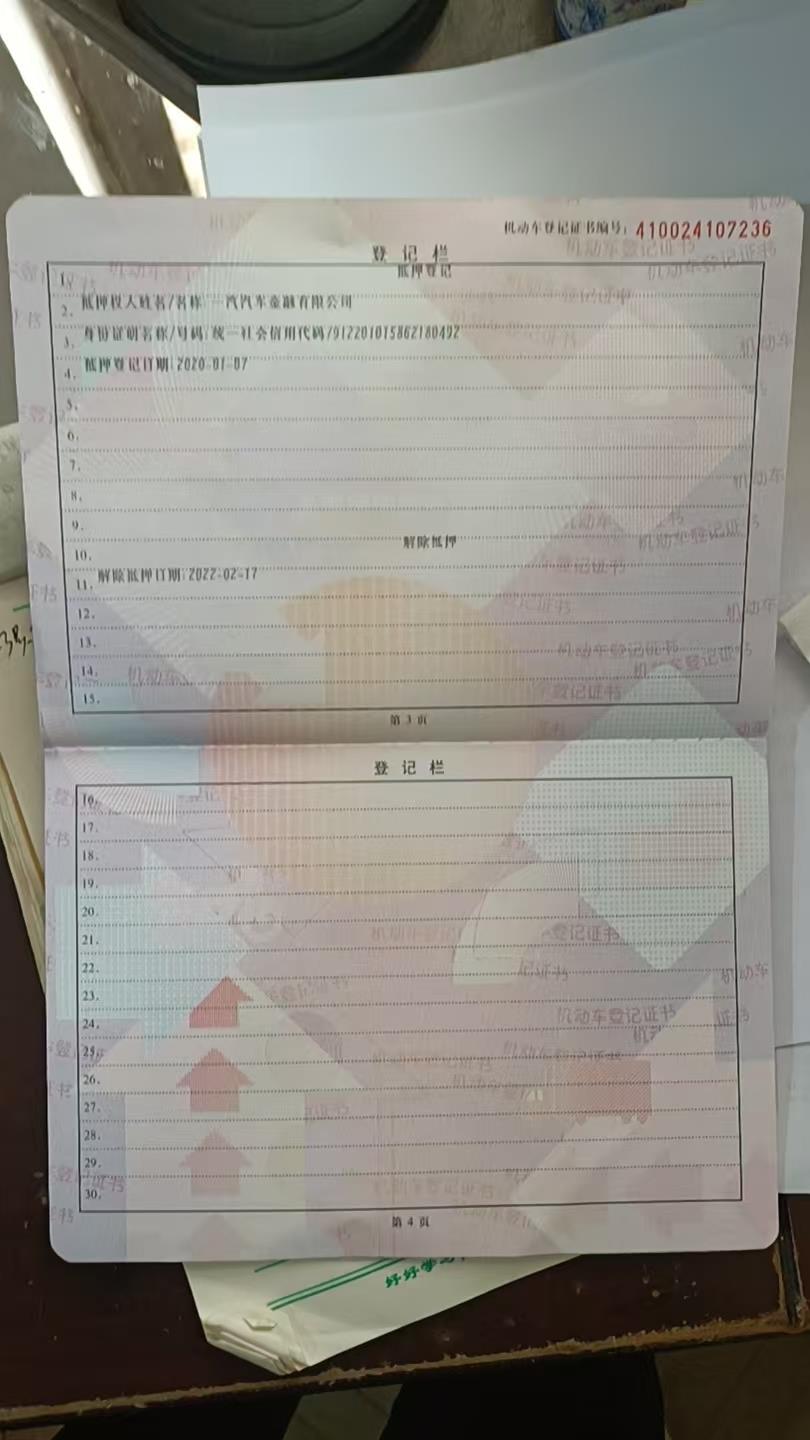 机动车登记证书编号：410024107236
登 记 栏
1. 抵押登记
2. 抵押权人姓名/名称:一汽汽车金融有限公司
3. 身份证明名称/号码:统一社会信用代码/912201015862180492
4. 抵押登记日期:2020-01-07
5.
6.
7.
8.
9.
10. 解除抵押
11. 解除抵押日期:2022-02-17
12.
13.
14.
15.
第 3 页
登 记 栏
16.
17.
18.
19.
20.
21.
22.
23.
24.
25.
26.
27.
28.
29.
30.
第 4 页
好好学